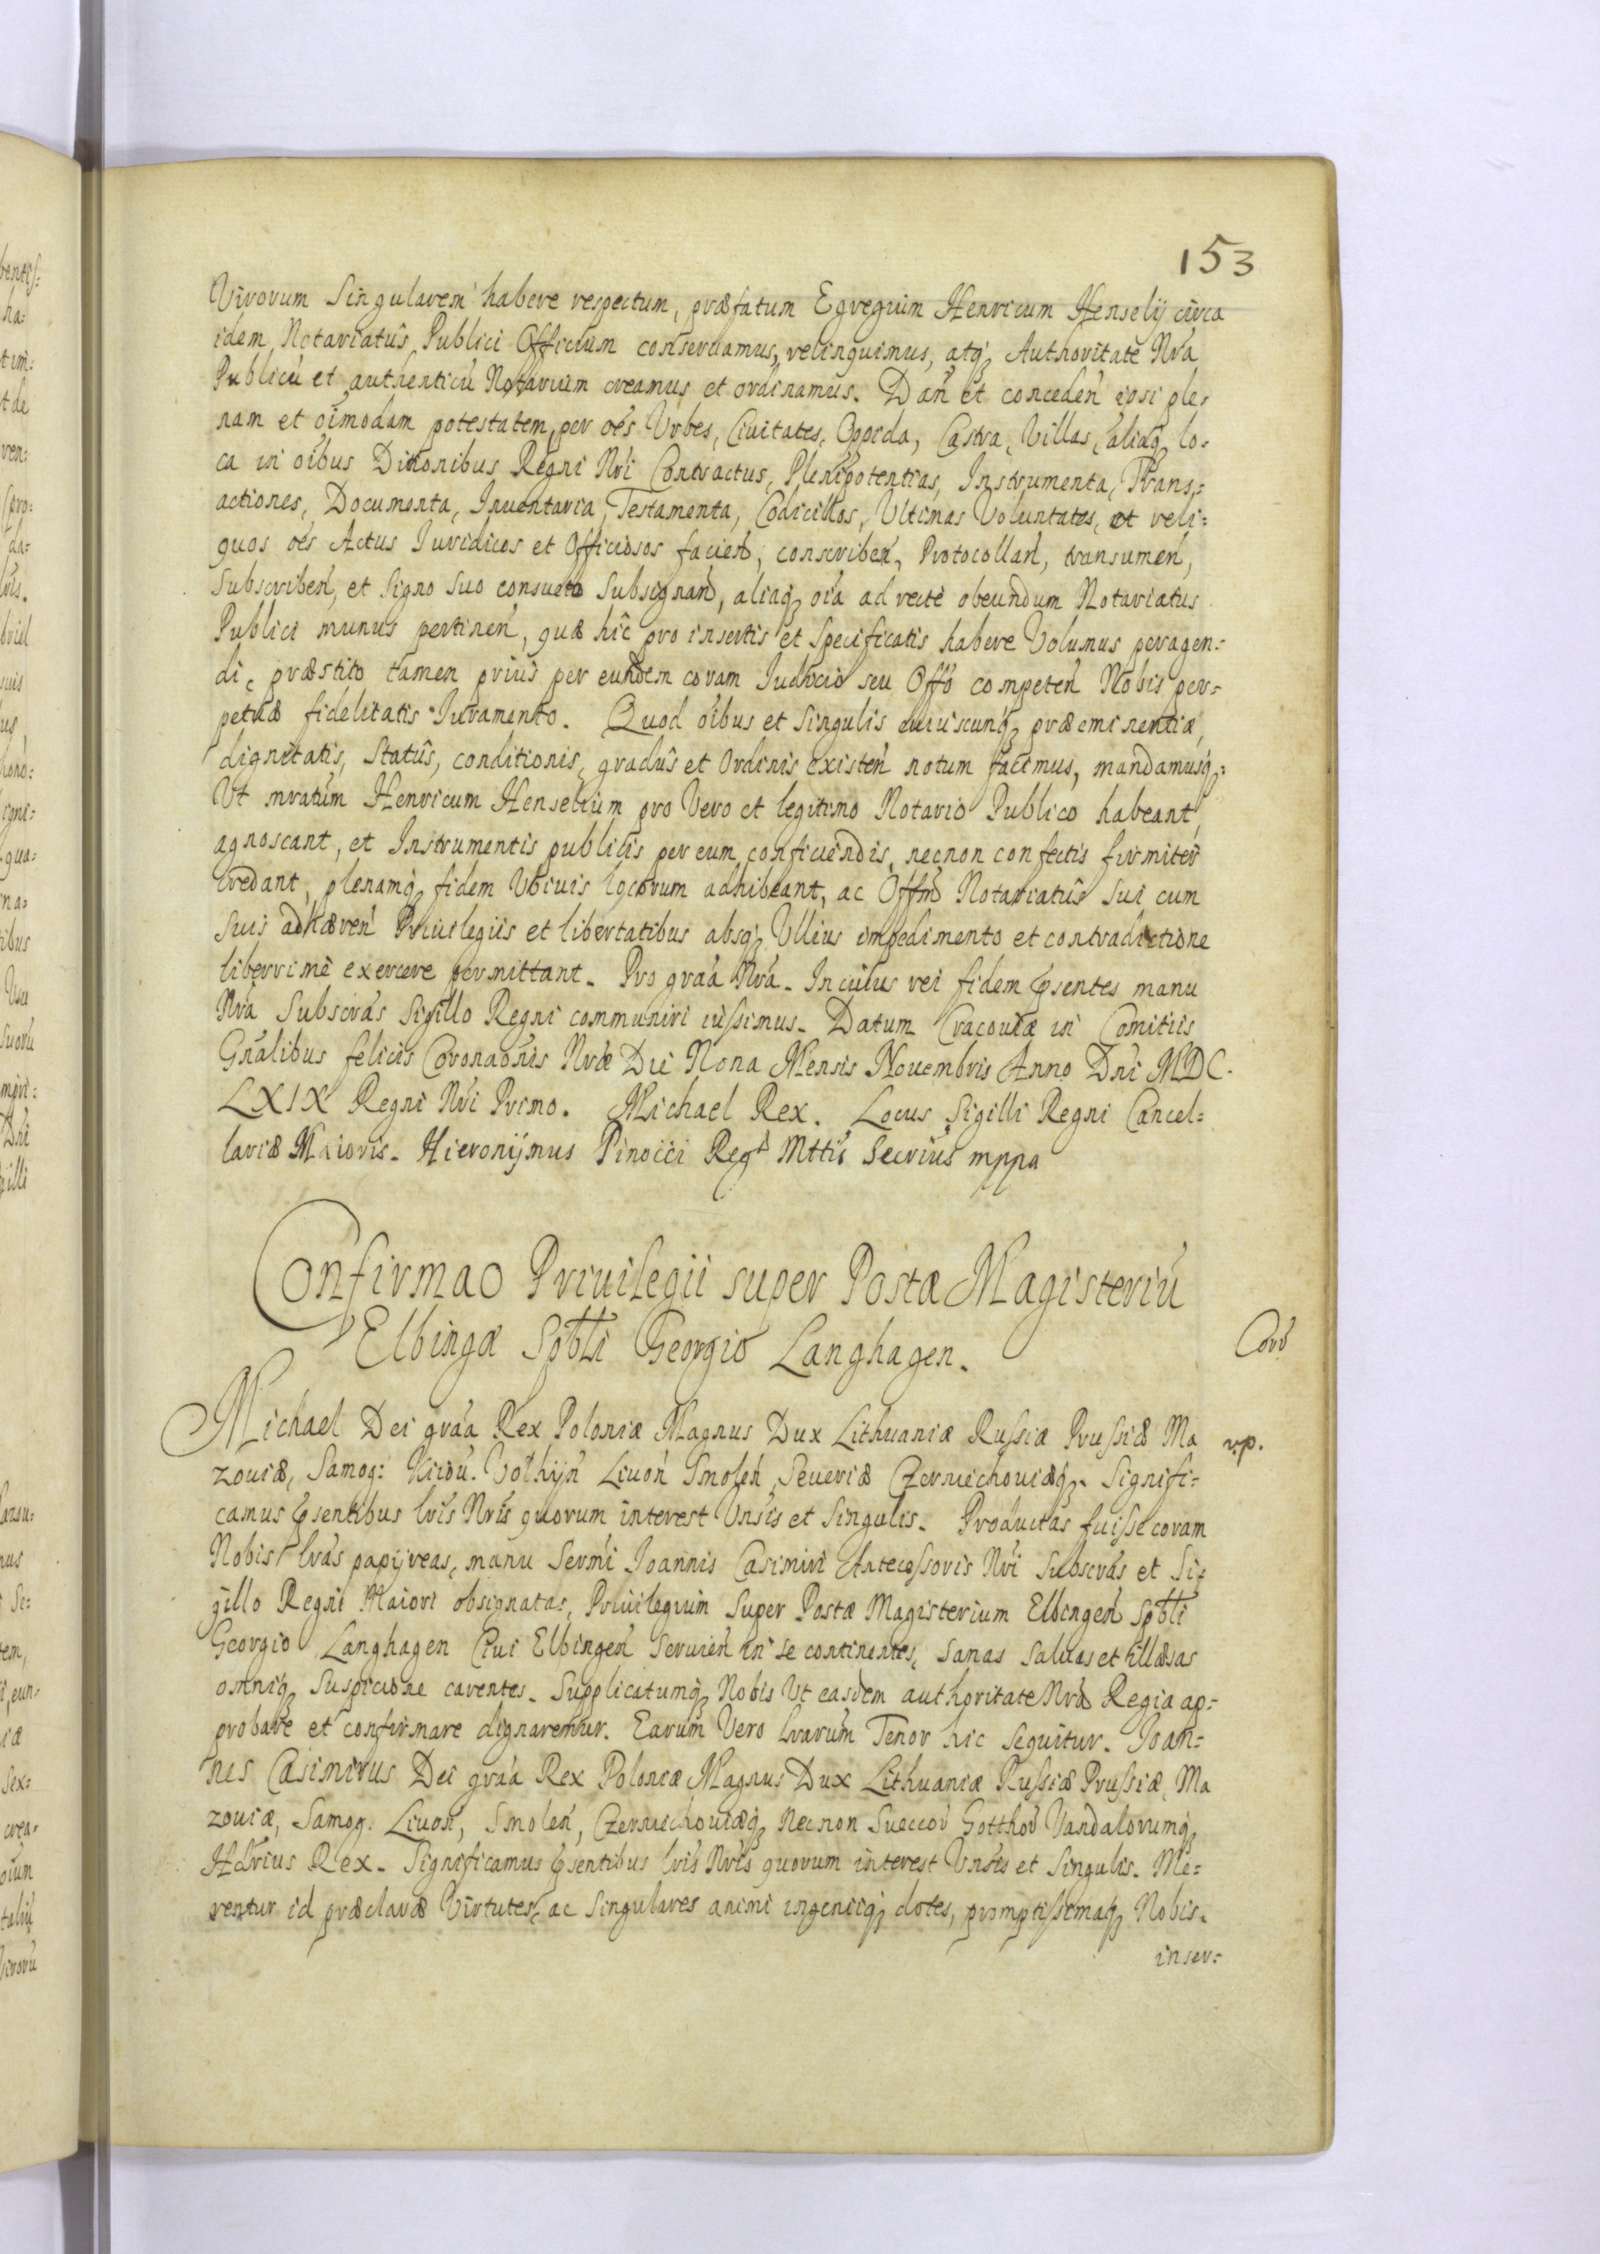 153
Virorum Singularem habere respectum, præfatum Egregium Henricum Henselij circa
idem Notariatûs Publici Officium conservamus, relinquimus, atq; Authoritate Nrã
Publicũ et authenticũ Notarium creamus et ordinamus. Dañ et concedeñ eosi ple=
nam et oimodam potestatem per oẽs Vrbes, Ciuitates, Oppida, Castra, Villas, aliaq; lo=
ca in oĩbus Ditionibus Regni Nri Contractus, Plenipotentias, Instrumenta, Trans=
actiones, Documenta, Inuentaria, Testamenta, Codicillos, Vltimas Voluntates, et reli=
quos oẽs Actus Iuridicos et Officiosos facieñ, conscribeñ, Protocollañ, transumeñ,
Subscribeñ, et Signo Suo consueto Subsignañ, aliaq; oiã ad rectè obeundum Notariatus
Publici munus pertineñ, quæ hîc pro insertis et Specificatis habere Volumus peragen=
di, præstito tamen prius per eundem coram Iudicio seu Offõ competeñ Nobis per=
petuæ fidelitatis Iuramento. Quod oĩbus et Singulis cuiuscunq; præeminentiæ,
dignitatis, Statûs, conditionis, gradûs et Ordinis existeñ notum facimus, mandamusq;
Vt mratum Henricum Henselium pro Vero et legitimo Notario Publico habeant,
agnoscant, et Instrumentis publicis per eum conficiendis, necnon confectis firmiter
credant, plenamq; fidem Vbiuis locorum adhibeant, ac Offm Notariatûs Sui cum
Suis adhæreñ Priuilegiis et libertatibus absq; Vllius impedimento et contradictione
liberrimè exercere permittant. Pro graã Nrã. In cuius rei fidem p̃sentes manu
Nrã Subscrãs Sigillo Regni communiri iussimus. Datum Cracouiæ in Comitiis
Gñalibus felicis Coronaõnis Nræ Die Nona Mensis Nouembris Anno Dñi MDC.
LXIX Regni Nri Primo. Michael Rex. Locus Sigilli Regni Cancel=
lariæ Maioris. Hieronijmus Pinocci Regæ Mttis Secrius mppa
Confirmao Priuilegii super Postæ Magisteriũ
Elbingæ Spbli Georgio Langhagen.
Michael Dei graã Rex Poloniæ Magnus Dux Lithuaniæ Russiæ Prussiæ Ma
zouiæ, Samog: Kiiou. Volhijñ Liuoñ Smoleñ, Seueriæ Czerniechouiæq;. Signifi=
camus p̃sentibus lris Nris quorum interest Vnsis et Singulis. Productas fuisse coram
Nobis lras papijreas, manu Sermi Joannis Casimiri Antecessoris Nri Subscrãs et Si=
gillo Regni Maiori obsignatas, Priuilegium Super Postæ Magisterium Elbingeñ Spbli
Georgio Langhagen Ciui Elbingeñ Seruieñ in se continentes, Sanas Saluas et illæsas
omniq; Suspicione carentes. Supplicatumq; Nobis Vt easdem authoritate Nrã Regia ap=
probare et confirmare dignaremur. Earum Vero lrarum Tenor hic Sequitur. Joan=
nes Casimirus Dei graã Rex Poloniæ Magnus Dux Lithuaniæ Russiæ Prussiæ, Ma
zouiæ, Samog. Liuoñ, Smoleñ, Czerniechouiæq; Necnon Sueccor Gotthor Vandalorumq;
Hdrius Rex. Significamus p̃sentibus lris Nris quorum interest Vnsis et Singulis. Me=
rentur id præclaræ Virtutes, ac Singulares animi ingeniiq; dotes, promptissimaq; Nobis
inser=